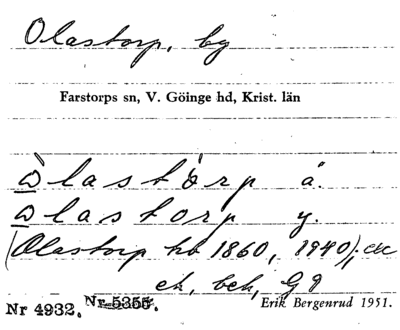 Olastorp, by
Farstorps sn, V. Göinge hd, Krist. län
å.
y.
(Olastorp hb 1860, 1940), ek
ek, bek, Gg
Nr 4932. Nr 5355. Erik Bergenrud 1951.